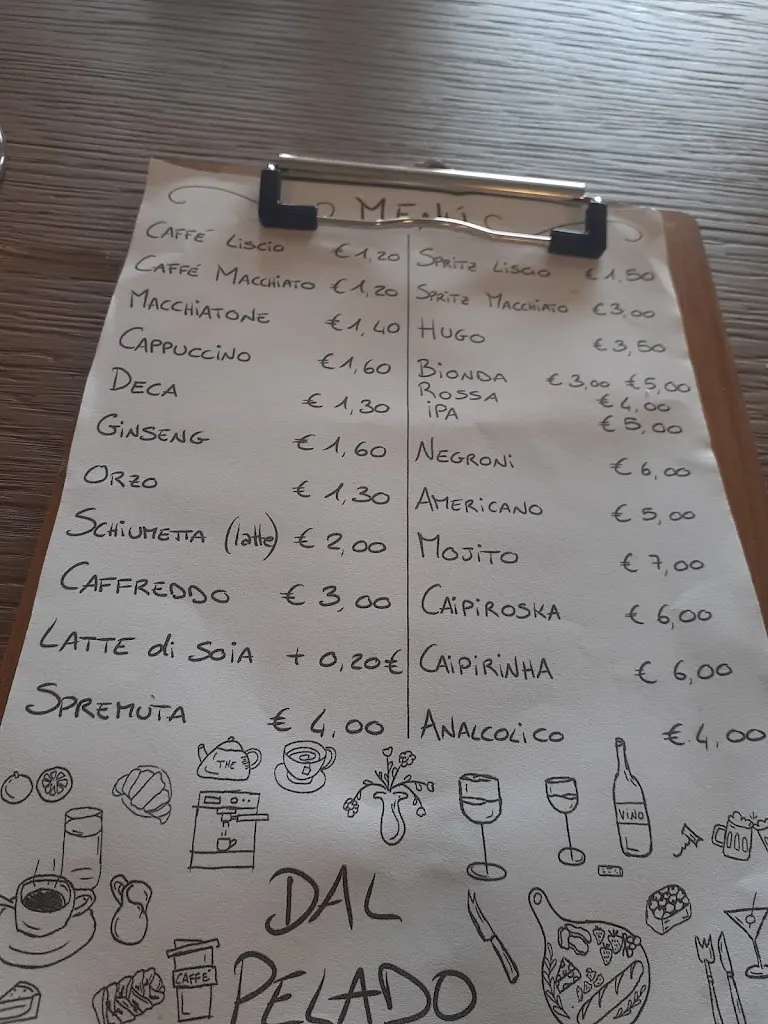 MENÙ
CAFFÉ LISCIO € 1,20
CAFFÉ MACCHIATO € 1,20
MACCHIATONE € 1,40
CAPPUCCINO € 1,60
DECA € 1,30
GINSENG € 1,60
ORZO € 1,30
SCHIUMETTA (latte) € 2,00
CAFFREDDO € 3,00
LATTE di SOIA + 0,20€
SPREMUTA € 4,00
SPRITZ LISCIO € 1,50
SPRITZ MACCHIATO € 3,00
HUGO € 3,50
BIONDA € 3,00 € 5,00
ROSSA € 4,00
IPA € 5,00
NEGRONI € 6,00
AMERICANO € 5,00
MOJITO € 7,00
CAIPIROSKA € 6,00
CAIPIRINHA € 6,00
ANALCOLICO € 4,00
THE
VINO
CAFFE'
DAL
PELADO